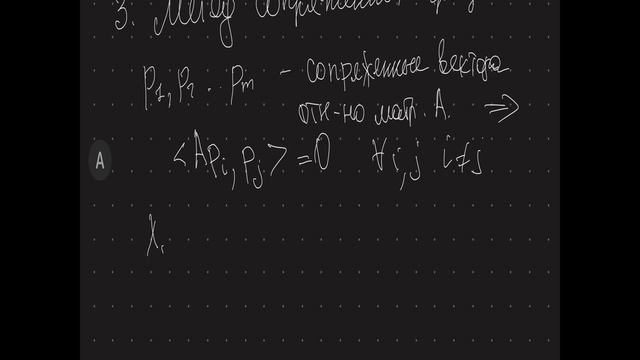 3. Метод сопряженных
p₁, p₂ .. pₘ - сопряженные вектора
отн-но матр. A. ⇒
A
<Apᵢ, pⱼ> = 0 ∀ i, j i ≠ j